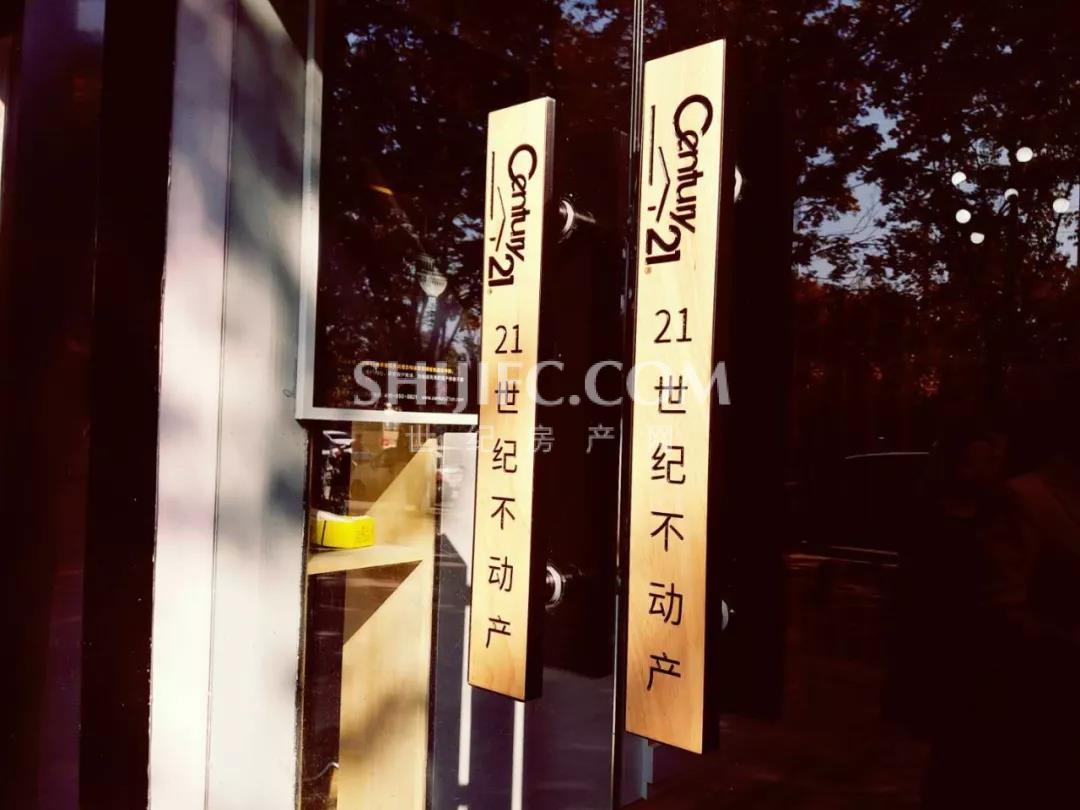 Century 21
21世纪不动产
Century 21
21世纪不动产
SHIJIFC.COM
世纪房产网